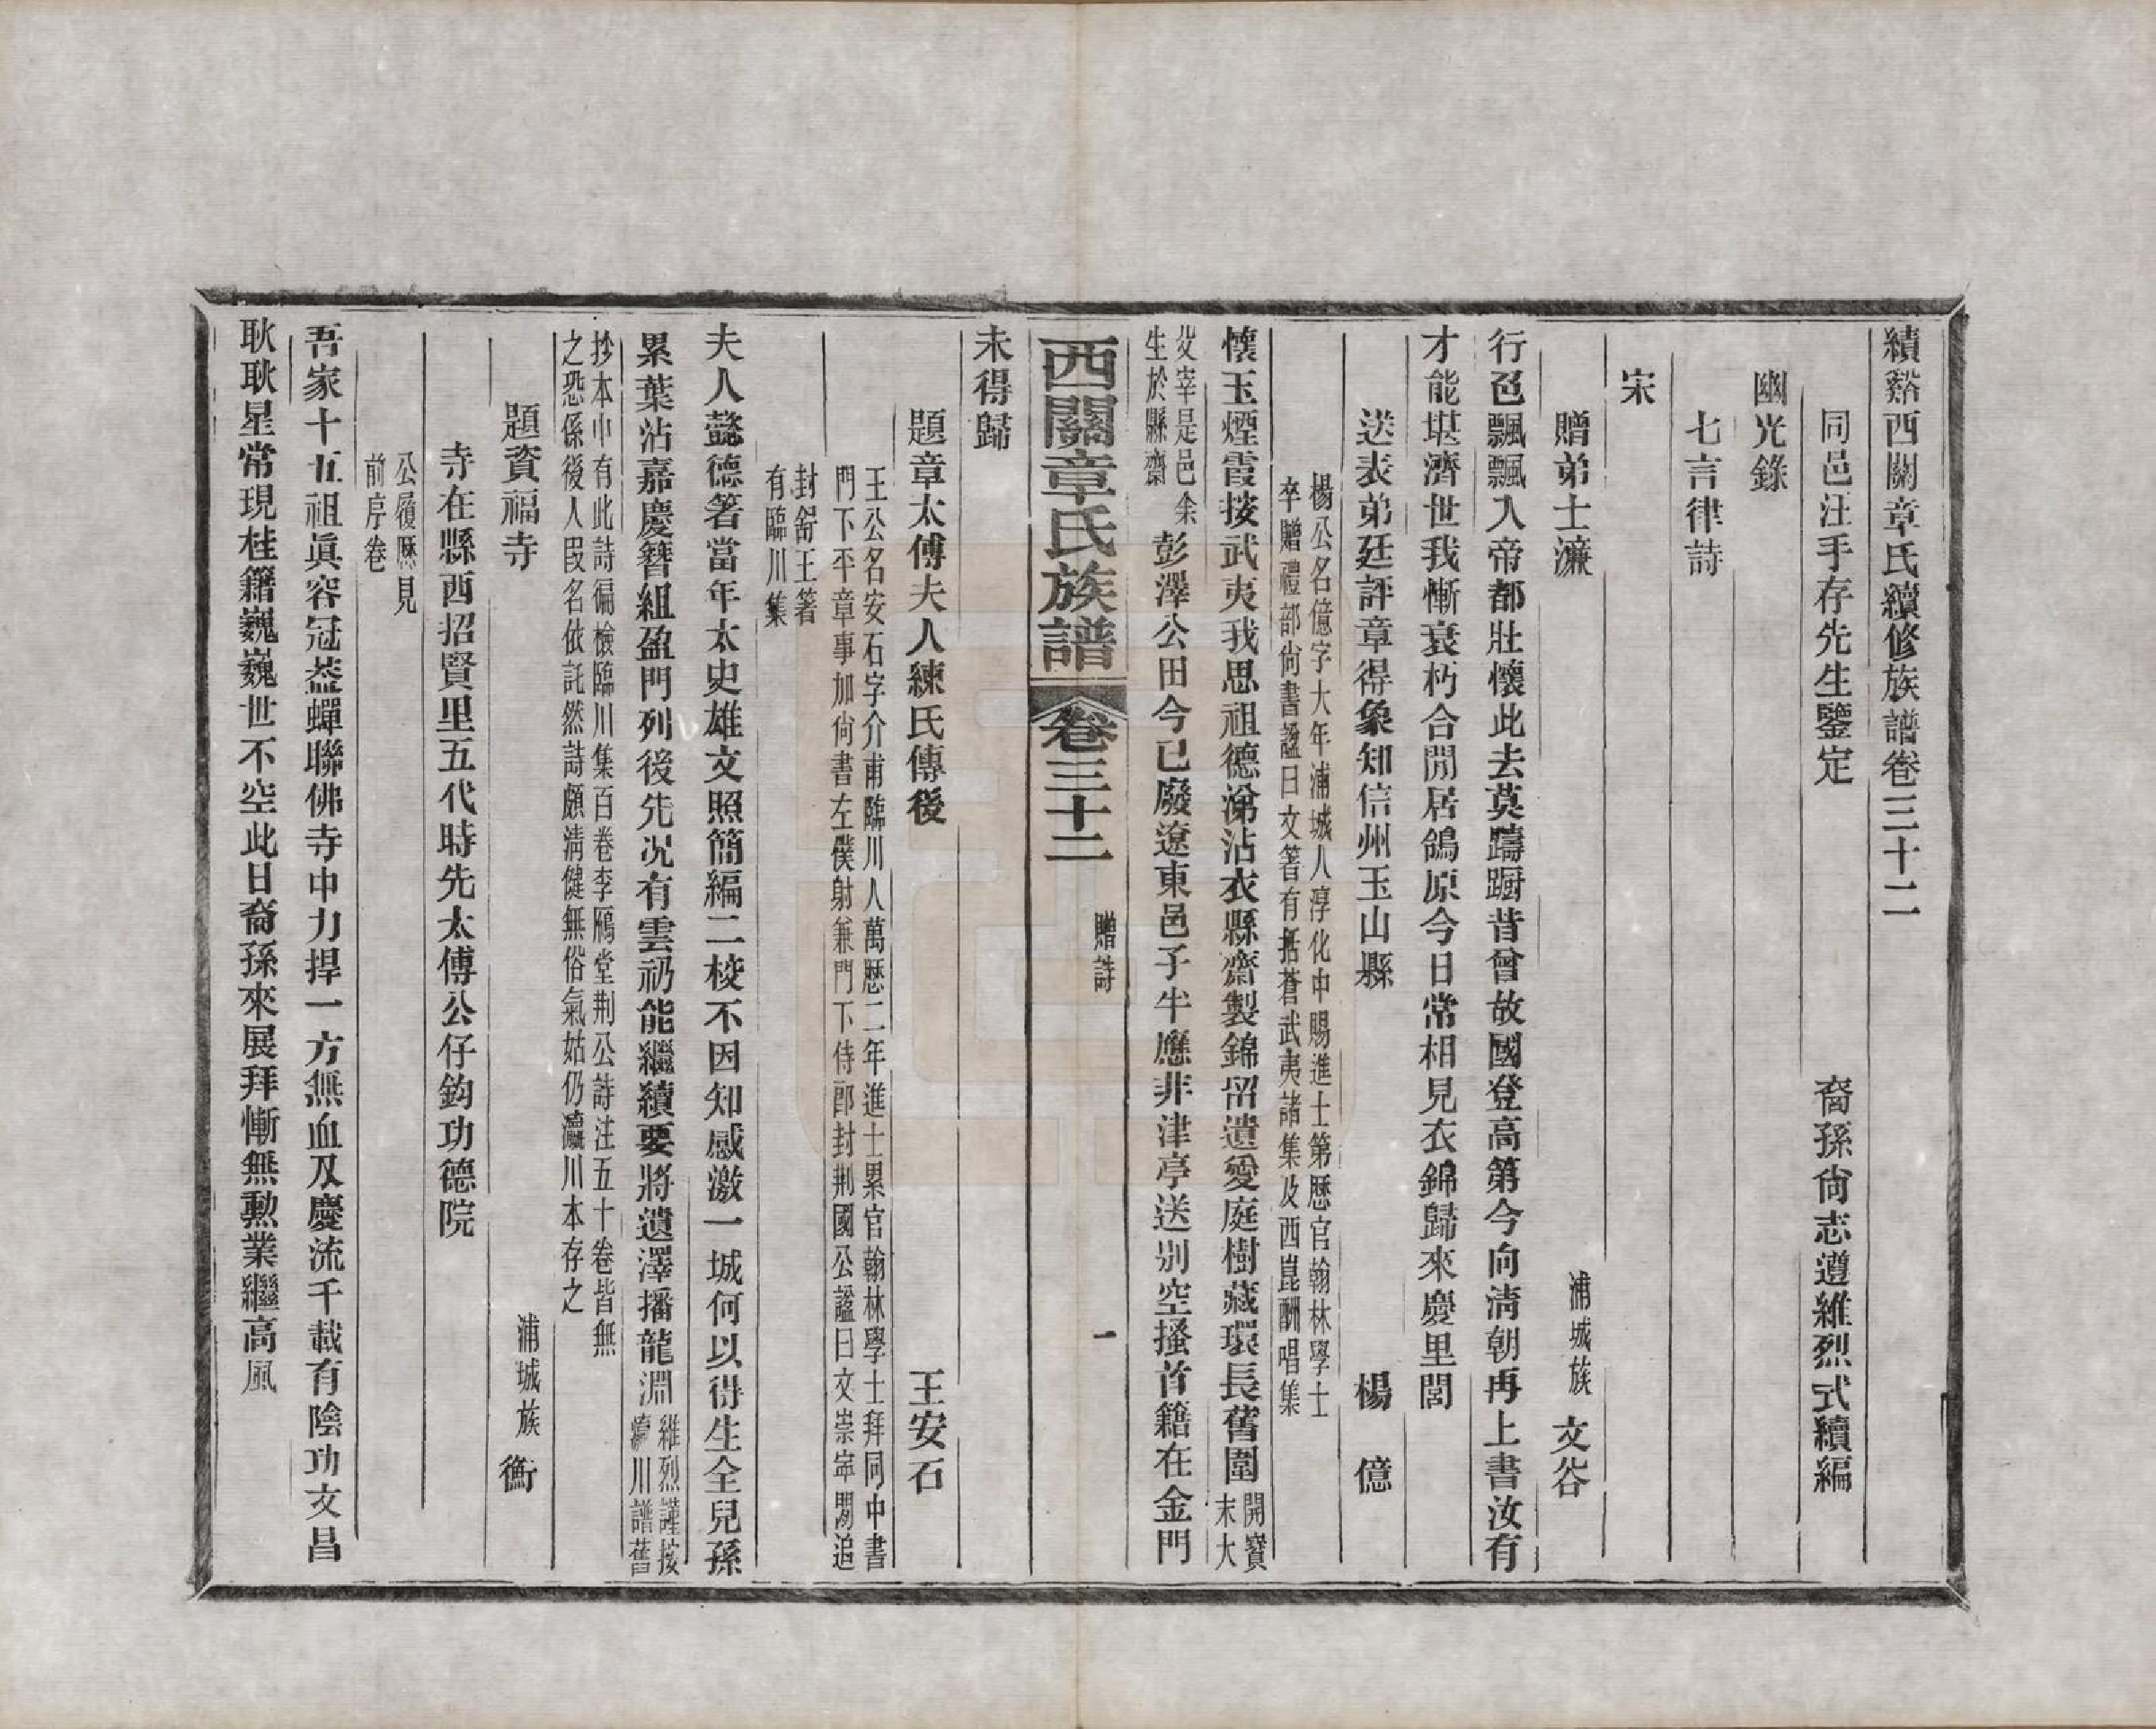 績谿西關章氏續修族譜卷三十二
同邑汪手存先生鑒定 裔孫尙志遵維烈式續編
幽光錄
七言律詩
宋
贈弟士濂 浦城族 文谷
行色飄飄入帝都壯懷此去莫躊躕昔曾故國登高第今向淸朝再上書汝有
才能堪濟世我慚衰朽合閒居鴿原今日常相見衣錦歸來慶里閭
送表弟廷評章得象知信州玉山縣 楊億
楊公名億字大年浦城人淳化中賜進士第歷官翰林學士
卒贈禮部尙書謚曰文箸有括蒼武夷諸集及西崑酬唱集
懷玉煙霞接武夷我思祖德淚沾衣縣齋製錦留遺愛庭樹藏環長舊圍
開寶
末大
父宰是邑余
生於縣齋
彭澤公田今已廢遼東邑子半應非津亭送別空搔首籍在金門
西關章氏族譜 卷三十二 贈詩 一
未得歸
題章太傅夫人練氏傳後 王安石
王公名安石字介甫臨川人萬歷二年進士累官翰林學士拜同中書
門下平章事加尙書左僕射兼門下侍郎封荆國公謚曰文崇寧閒追
封舒王箸
有臨川集
夫人懿德箸當年太史雄文照簡編二校不因知感激一城何以得生全兒孫
累葉沾嘉慶簪組盈門列後先況有雲礽能繼續要將遺澤播龍淵
維烈謹按
瀛川譜舊
抄本中有此詩徧檢臨川集百卷李雁堂荆公詩注五十卷皆無
之恐係後人叚名依託然詩頗淸健無俗氣姑仍瀛川本存之
題資福寺 浦城族 衡
寺在縣西招賢里五代時先太傅公仔鈞功德院
公履歷見
前序卷
吾家十五祖眞容冠蓋蟬聯佛寺中力捍一方無血刃慶流千載有陰功文昌
耿耿星常現桂籍巍巍世不空此日裔孫來展拜慚無勳業繼高風